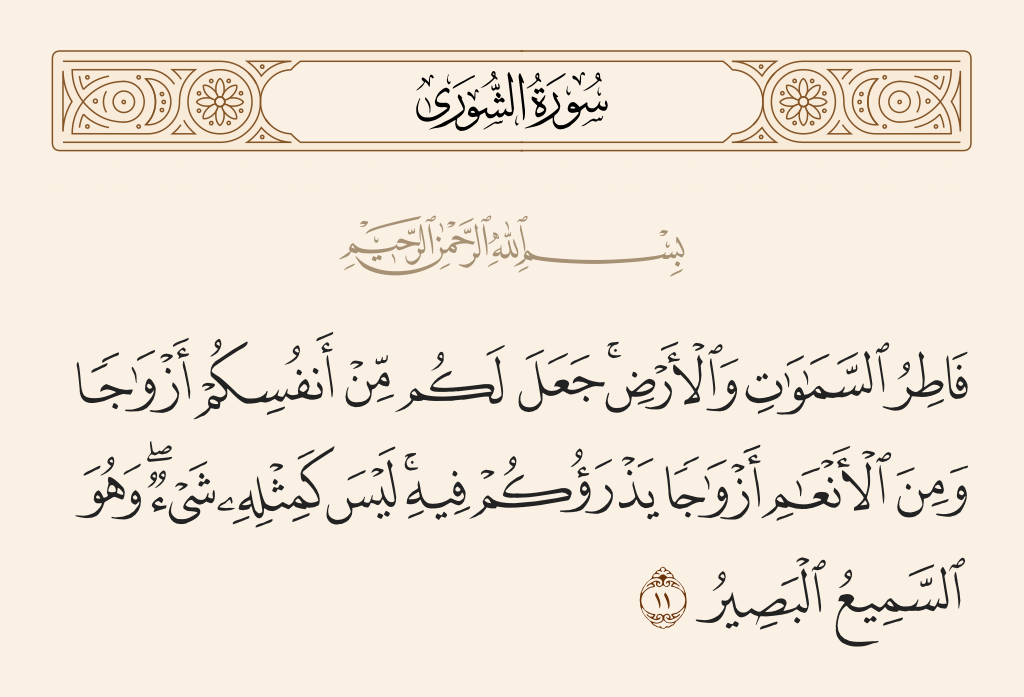 سُورَةُ الشُّورَىٰ
بِسْمِ ٱللَّهِ ٱلرَّحْمَٰنِ ٱلرَّحِيمِ
فَاطِرُ ٱلسَّمَٰوَٰتِ وَٱلْأَرْضِ ۚ جَعَلَ لَكُم مِّنْ أَنفُسِكُمْ أَزْوَٰجًا
وَمِنَ ٱلْأَنْعَٰمِ أَزْوَٰجًا يَذْرَؤُكُمْ فِيهِ ۚ لَيْسَ كَمِثْلِهِۦ شَىْءٌ ۖ وَهُوَ
ٱلسَّمِيعُ ٱلْبَصِيرُ ١١